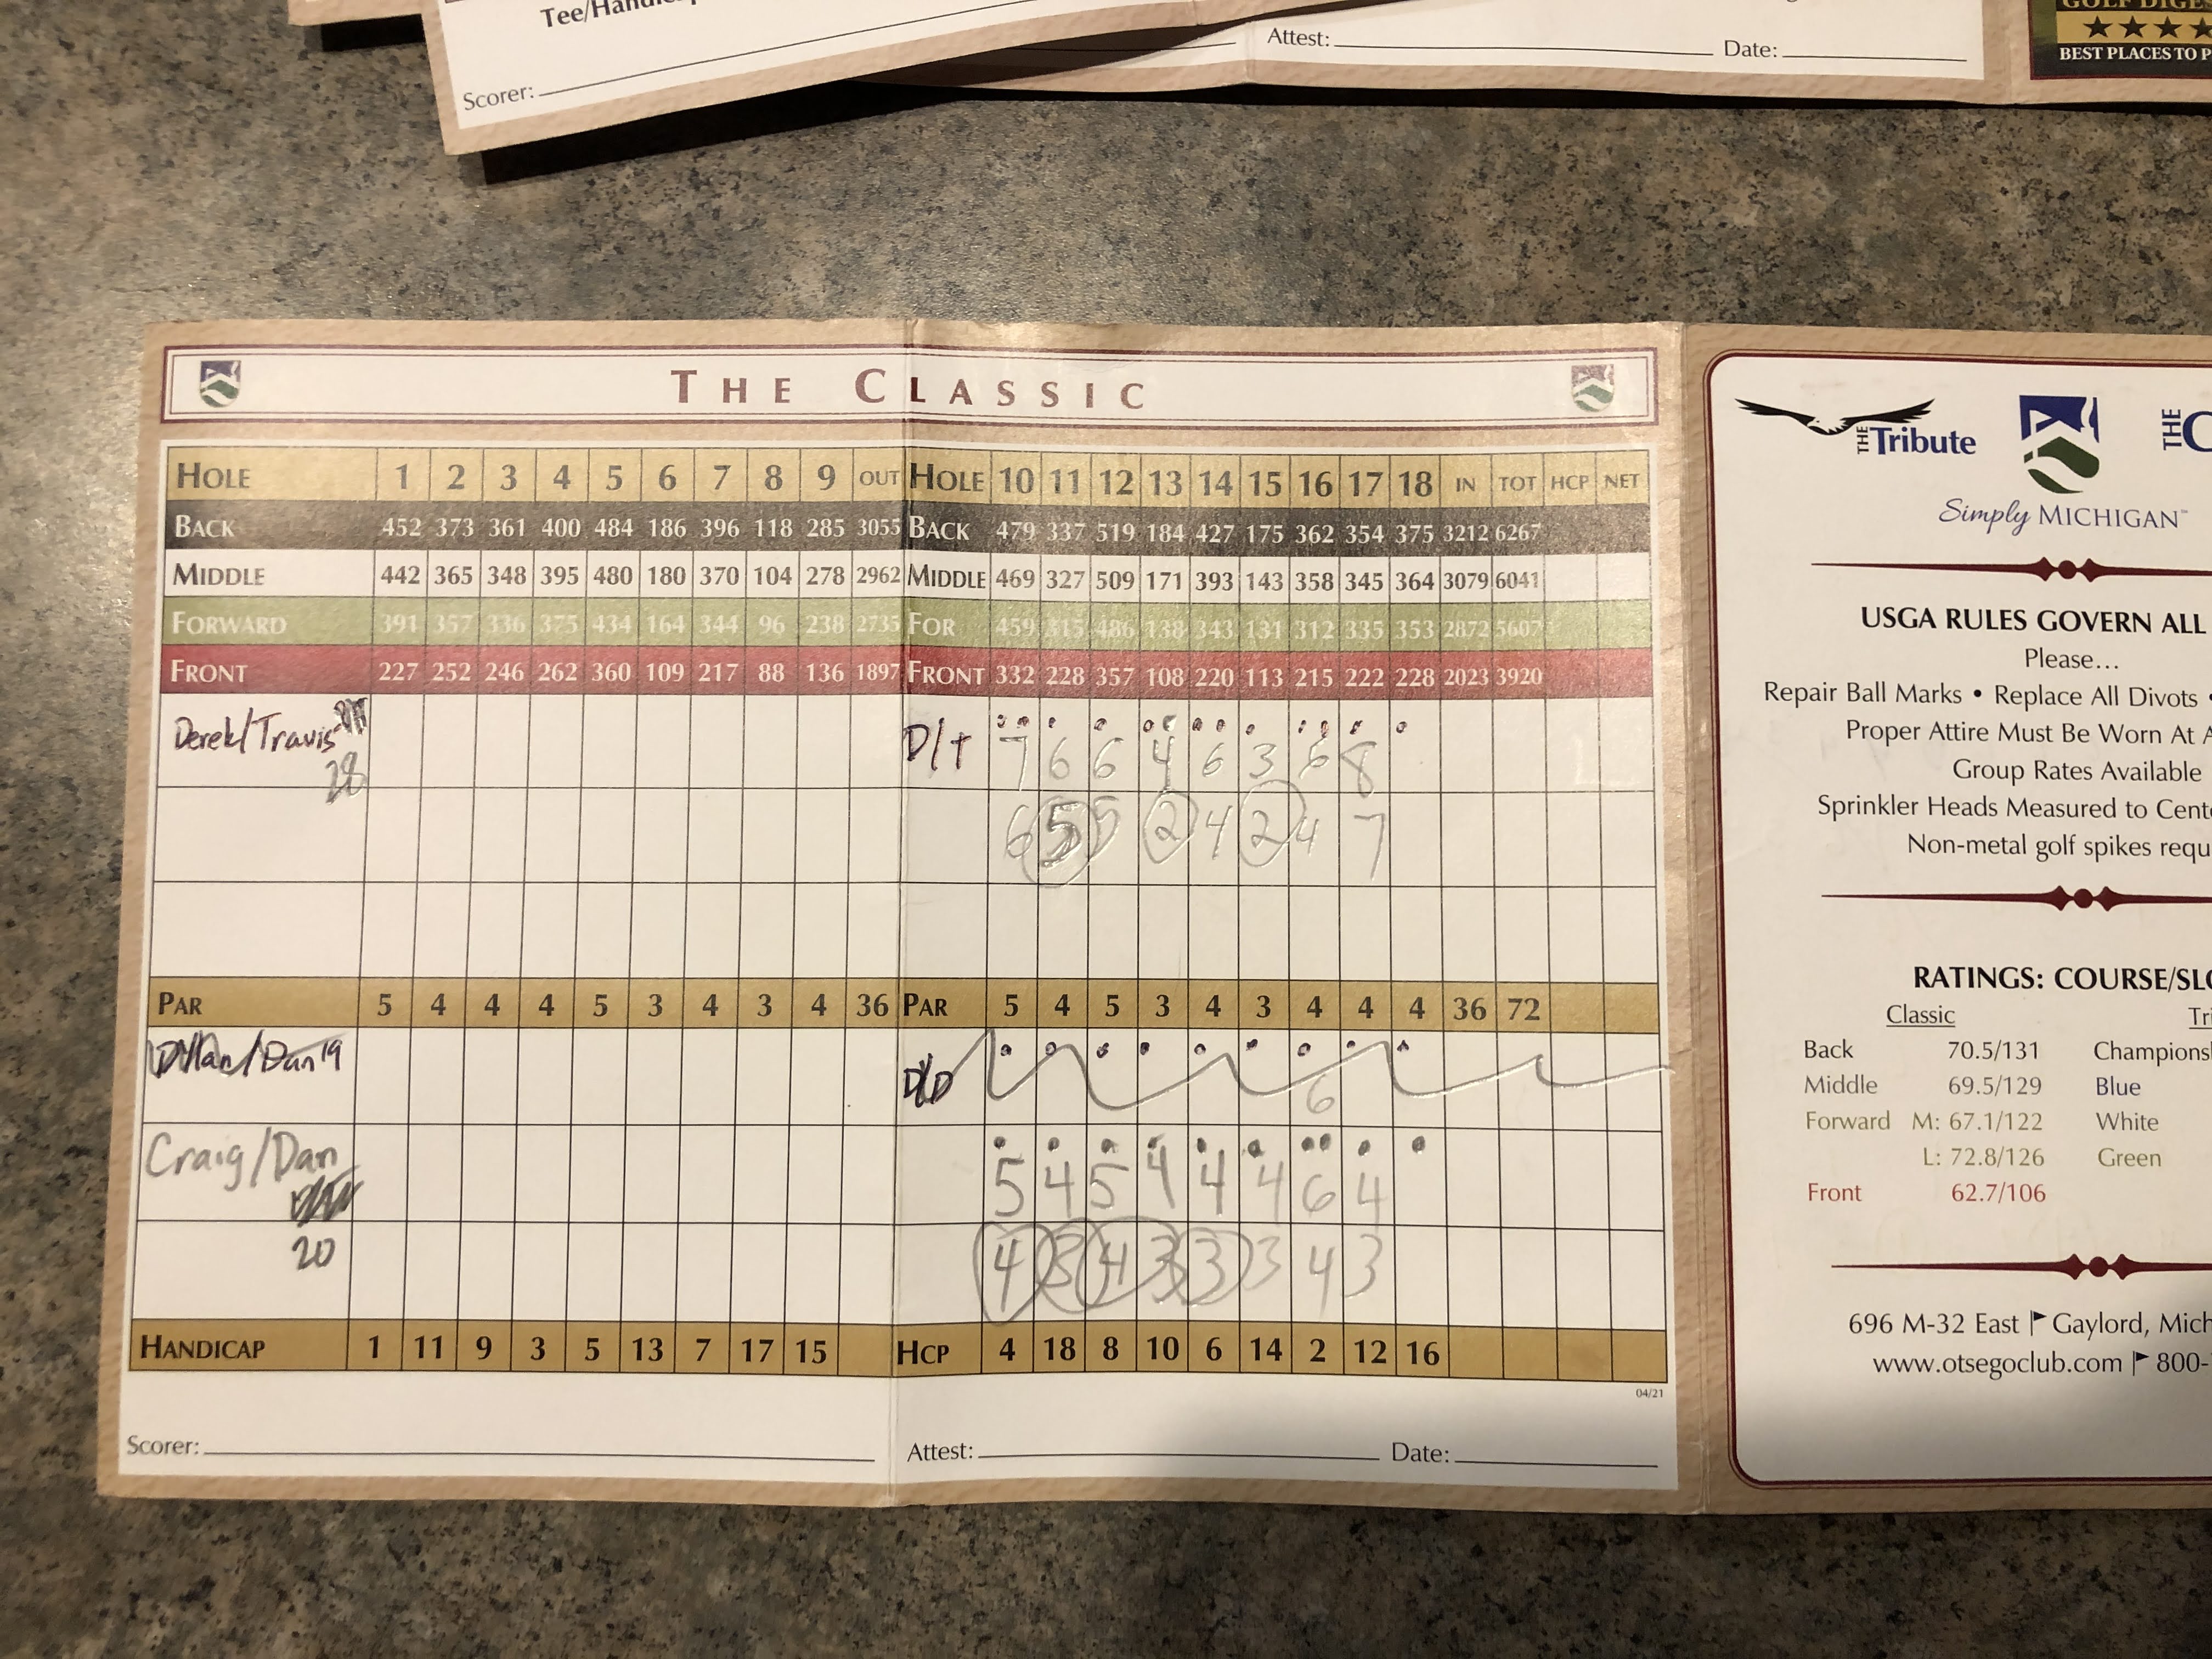 Tee/Handic
Scorer:
Attest:
Date:
GOLF DIGES
BEST PLACES TO P
THE CLASSIC
HOLE 1 2 3 4 5 6 7 8 9 OUT HOLE 10 11 12 13 14 15 16 17 18 IN TOT HCP NET
BACK 452 373 361 400 484 186 396 118 285 3055 BACK 479 337 519 184 427 175 362 354 375 3212 6267
MIDDLE 442 365 348 395 480 180 370 104 278 2962 MIDDLE 469 327 509 171 393 143 358 345 364 3079 6041
FORWARD 391 357 336 375 434 164 344 96 238 2735 FOR 459 315 486 138 343 131 312 335 353 2872 5607
FRONT 227 252 246 262 360 109 217 88 136 1897 FRONT 332 228 357 108 220 113 215 222 228 2023 3920
Derek/Travis D/T 7 6 6 4 6 3 6 8
28
6 5 5 2 4 2 4 7
PAR 5 4 4 4 5 3 4 3 4 36 PAR 5 4 5 3 4 3 4 4 4 36 72
Dyllan/Dan 19 D/D 6
Craig/Dan 5 4 5 4 4 4 6 4
20 4 3 4 3 3 3 4 3
HANDICAP 1 11 9 3 5 13 7 17 15 HCP 4 18 8 10 6 14 2 12 16
04/21
Scorer: Attest: Date:
THE Tribute
THE C
Simply MICHIGAN
USGA RULES GOVERN ALL
Please…
Repair Ball Marks • Replace All Divots •
Proper Attire Must Be Worn At A
Group Rates Available
Sprinkler Heads Measured to Cente
Non-metal golf spikes requ
RATINGS: COURSE/SLO
Classic Tri
Back 70.5/131 Champions
Middle 69.5/129 Blue
Forward M: 67.1/122 White
L: 72.8/126 Green
Front 62.7/106
696 M-32 East Gaylord, Mich
www.otsegoclub.com 800-